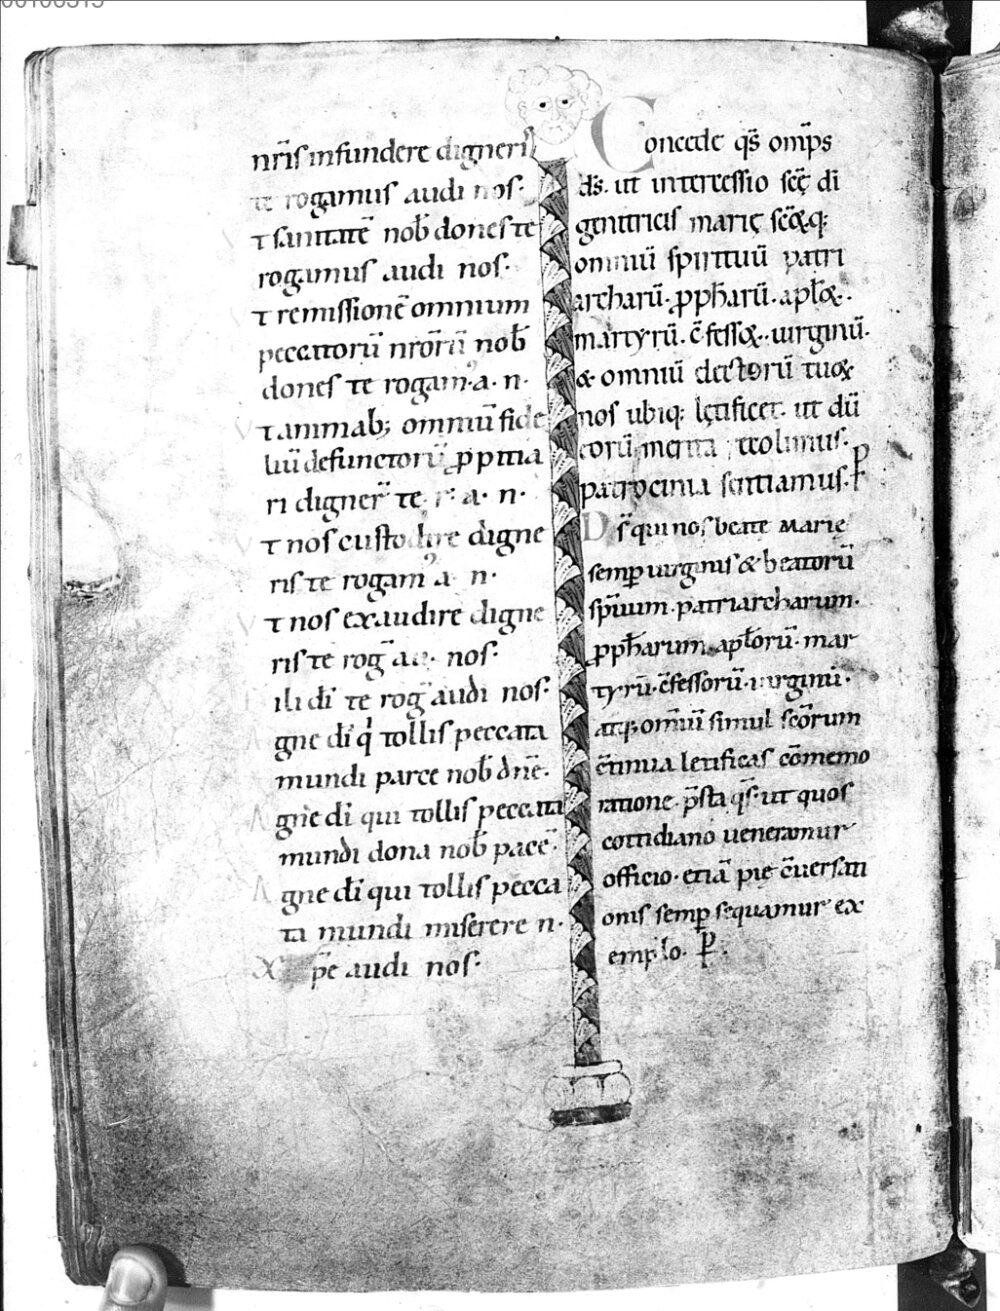 nr̄is infundere digneris
te rogamus audi nos·
Vt sanitatē nob̄ dones te
rogamus audi nos·
Vt remissionē omnium
peccatorū nrōrū nob̄
dones te rogam᾽·a·n·
Vt animab; omniū fide
liū defunctorū ꝓpitia
ri digner̄ te r·a·n·
Vt nos custodire digne
ris te rogam᾽ a n·
Vt nos exaudire digne
ris te roḡ a· nos·
Fili dī te roḡ audi nos·
Agne dī q̇ tollis peccata
mundi parce nob̄ dn̄e·
Agne dī qui tollis peccata
mundi dona nob̄ pacē·
Agne dī qui tollis pecca
ta mundi miserere n·
Xp̄e audi nos·
Concede qs̄ omp̄s
ds̄· ut intercessio scę̄ dī
genitricis marię scōꝝq:
omniū spirituū patri
archarū· ꝓph̄arū· apl̄oꝝ·
martyrū· c̄fessoꝝ· uirginū·
& omniū electorū tuoꝝ
nos ubiq: lętificet· ut dū
eorū merita recolimus·
patrocinia sentiamus· ꝑ
Ds̄ qui nos beate marie
semꝑ uirginis & beatorū
spūum· patriarcharum·
ꝓph̄arum· apl̄orū· mar
tyrū· c̄fessorū· uirginū·
atq· omīuī simul scōrum
c̄tinua letificas cōmemo
ratione· p̄sta qs̄· ut quos
cottidiano ueneramur
officio· etiā pie c̄uersati
onis semꝑ sequamur ex
emplo· ꝑ·